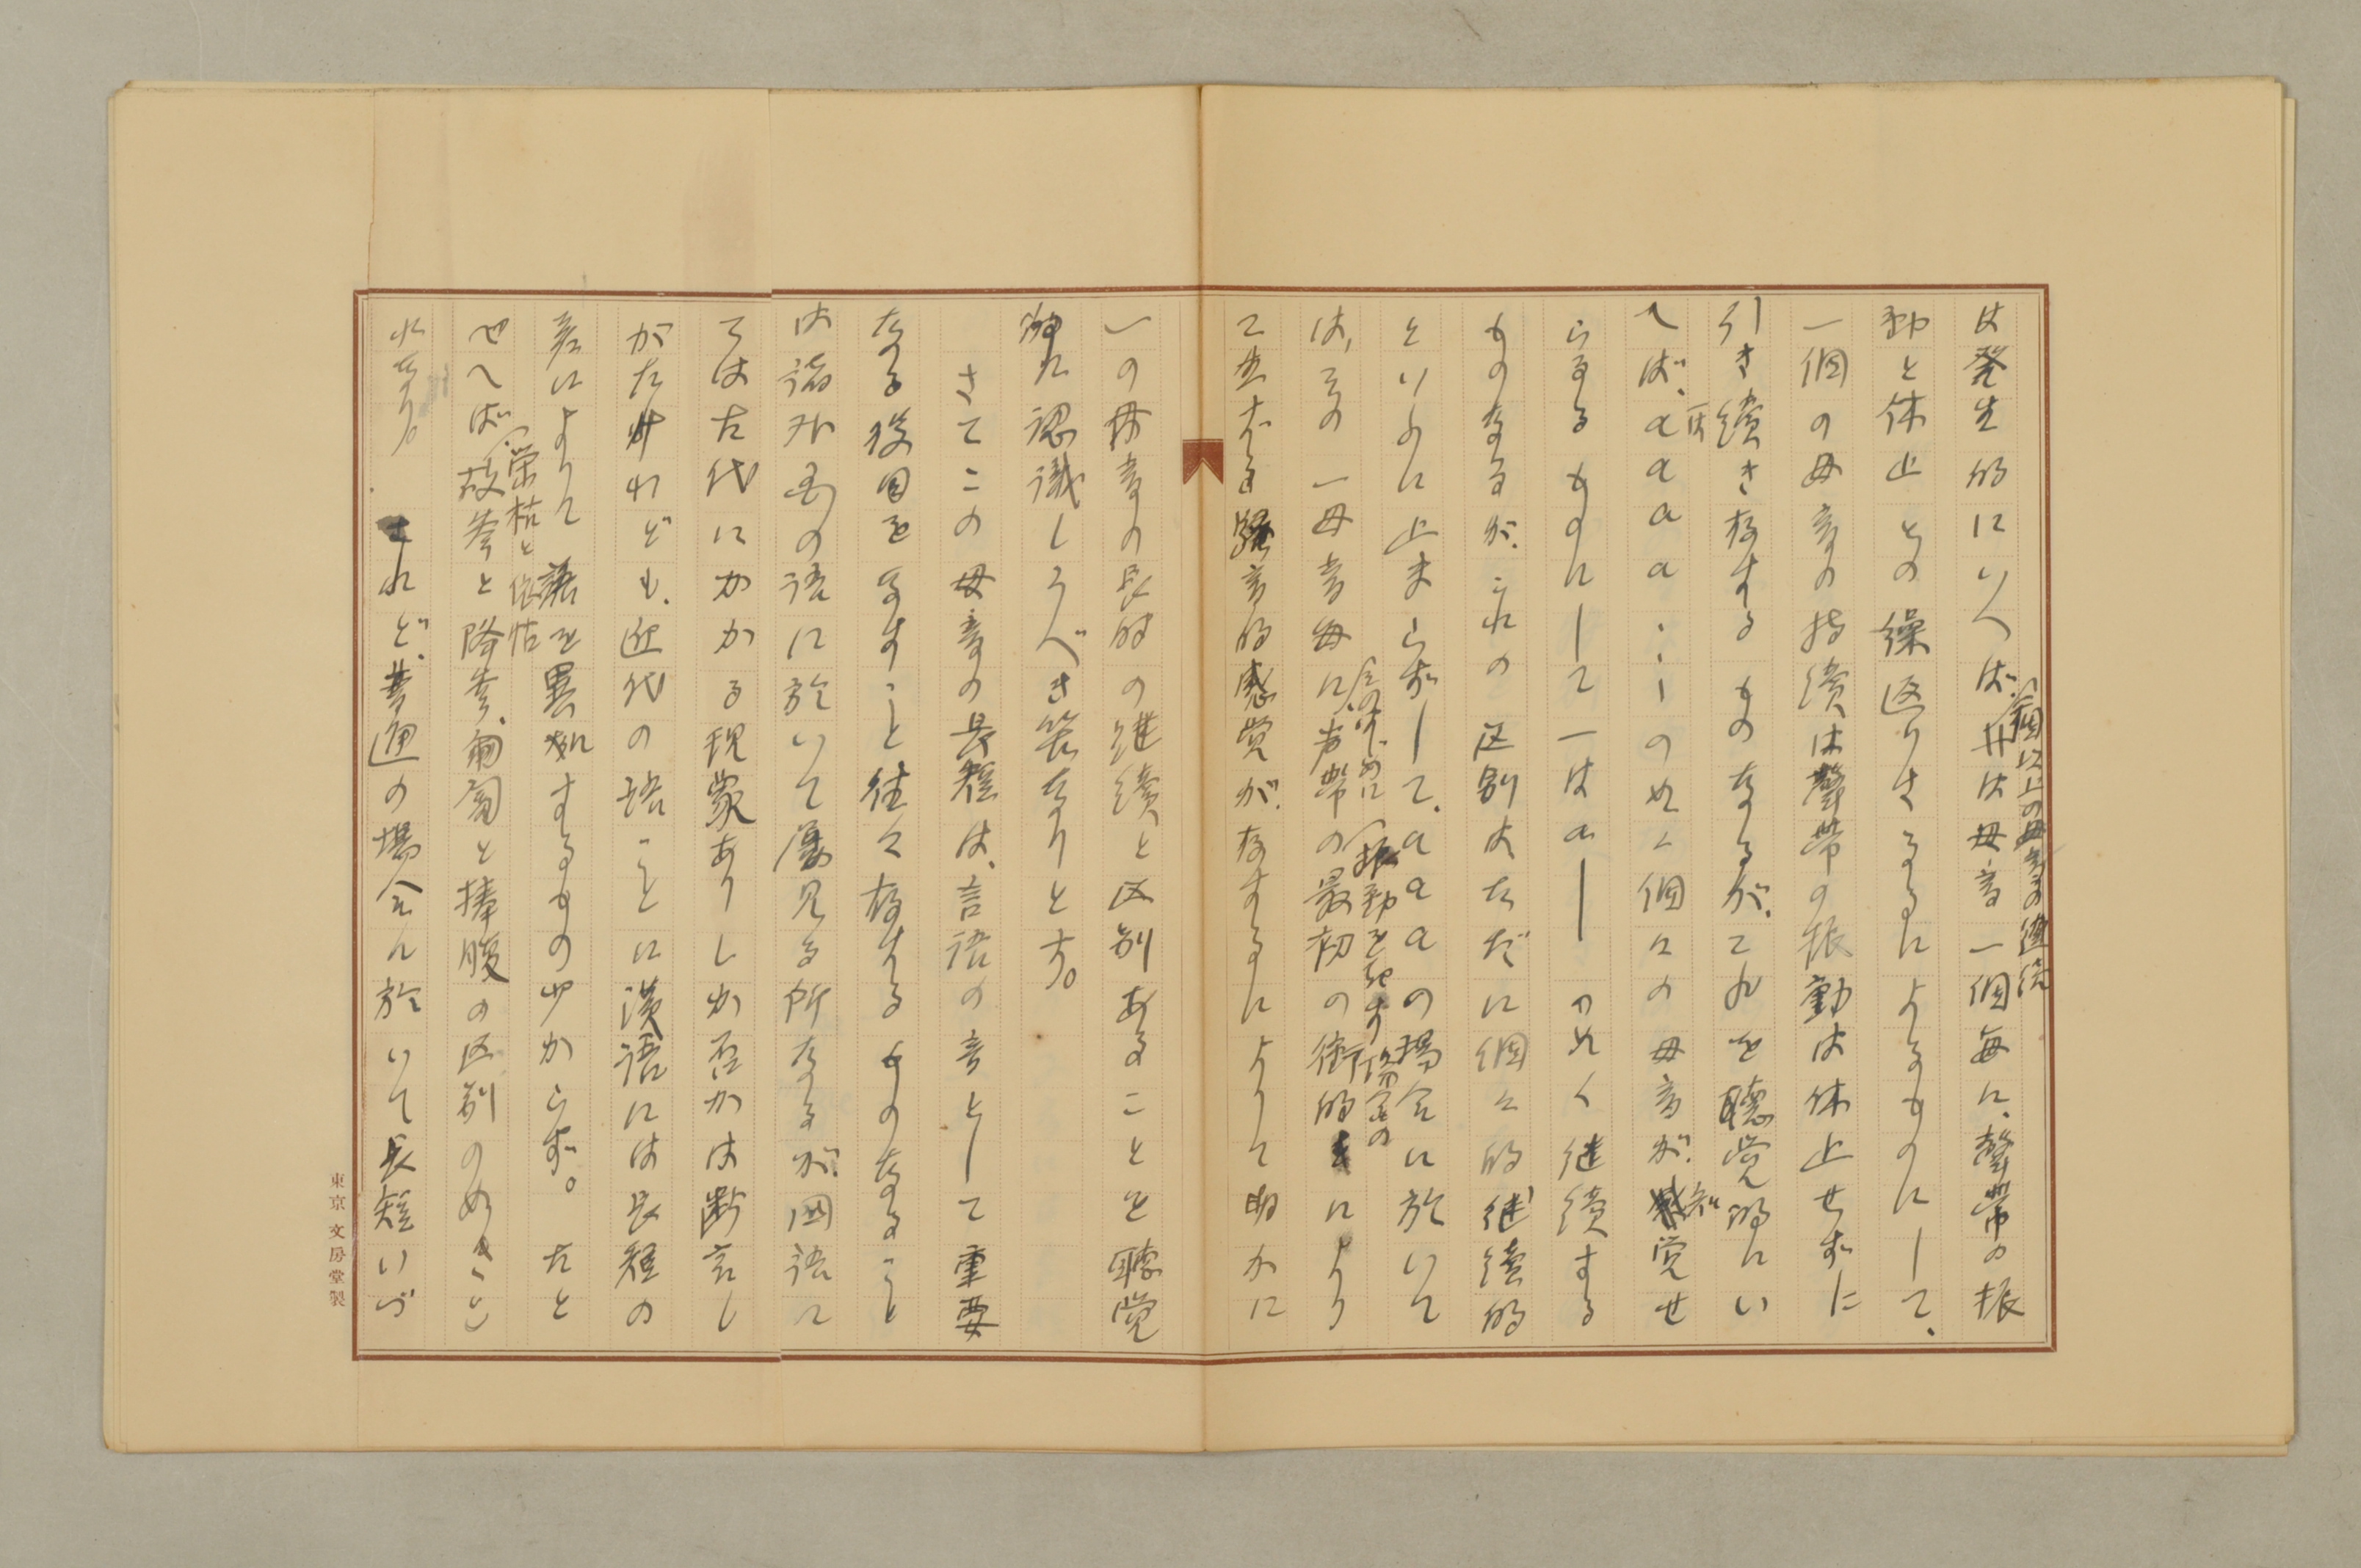 は発生的にいへば、は母音一個毎に、聲帯の振
個以上の母音の連続
動と休止との繰返りさるるによるものにして、
一個の母音の持続は聲帯の振動は休止せずに
引き続き存するものなるが、これを聴覚的にい
へば、aaaa……の如く個々の母音が、知覚せ
らるるものにして一はa―の如く継続する
ものなるが、これの区別はただに個々的継続的
といふに止まらずして、aaaの場合に於いて
は、その一母音毎に、声帯の最初の衝的により
そのはじめに
振動を起す場合の
て生ずる騒音的感覚が、存するによりて明かに
一の母音の長時の継続と区別あることを聴覚
的に認識しうべき筈なりとす。
さてこの母音の長短は、言語の音として重要
なる役目をなすこと往々存するものなること
は諸外国の語に於いて屡見る所なるが、国語に
ては古代にかかる現象ありしか否かは断言し
がたけれども、近代の語ことに漢語には長短の
差によりて語を異にするもの少からず。たと
せへば、故参と降参、匍匐と捧腹の区別の如きこ
栄枯と依怙
れなり。されど、普通の場合に於いて長短いづ
東京文房堂製